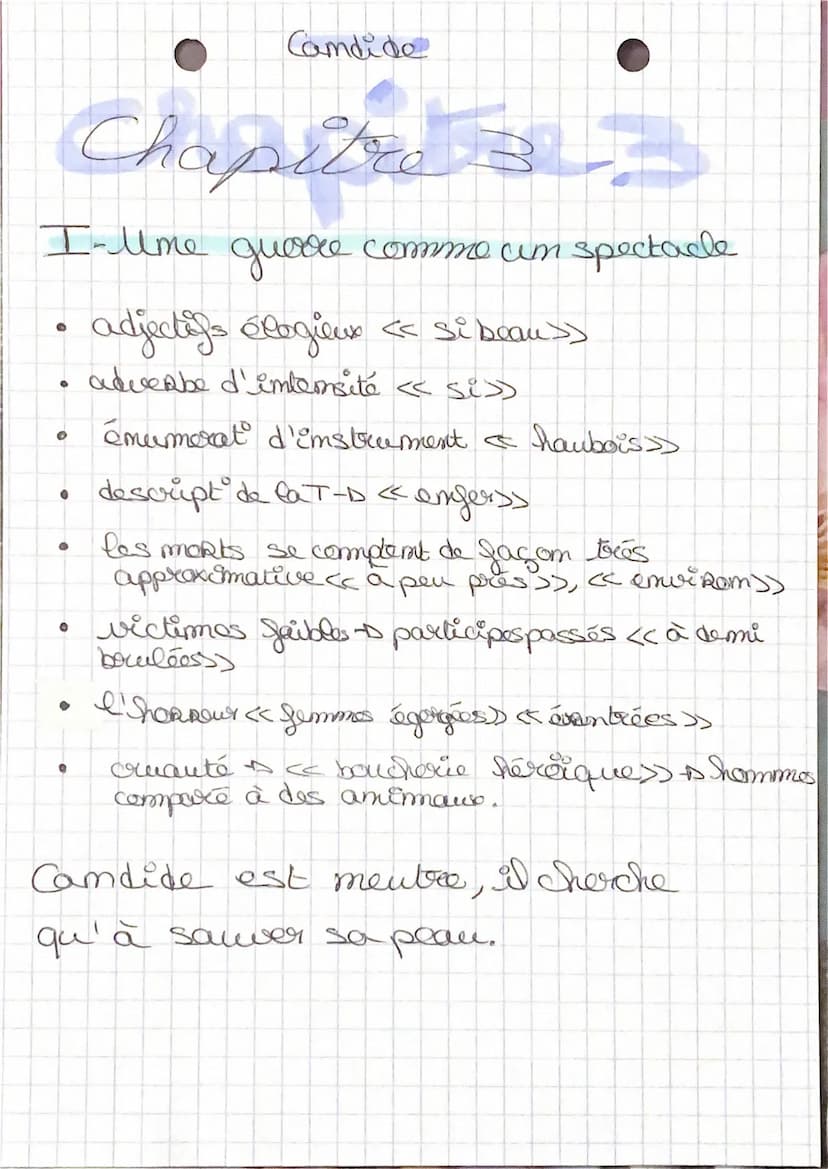 Candide
Chapitre 3
I-Une guerre comme un spectacle
• adjectifs élogieux << si beau>>
• adverbe d'intensité << si>>
• énumerat° d'instrument << haubois>>
• descript° de la T-D << enfer>>
• les morts se comptent de façon très
approximative << à peu près>>, << environ>>
• victimes faibles → participes passés << à demi
brulées>>
• l'horreur << femmes égorgées>> << éventrées>>
• cruauté → << boucherie héroïque>> → hommes
comparé à des animaux.
Candide est neutre, il cherche
qu'à sauver sa peau.